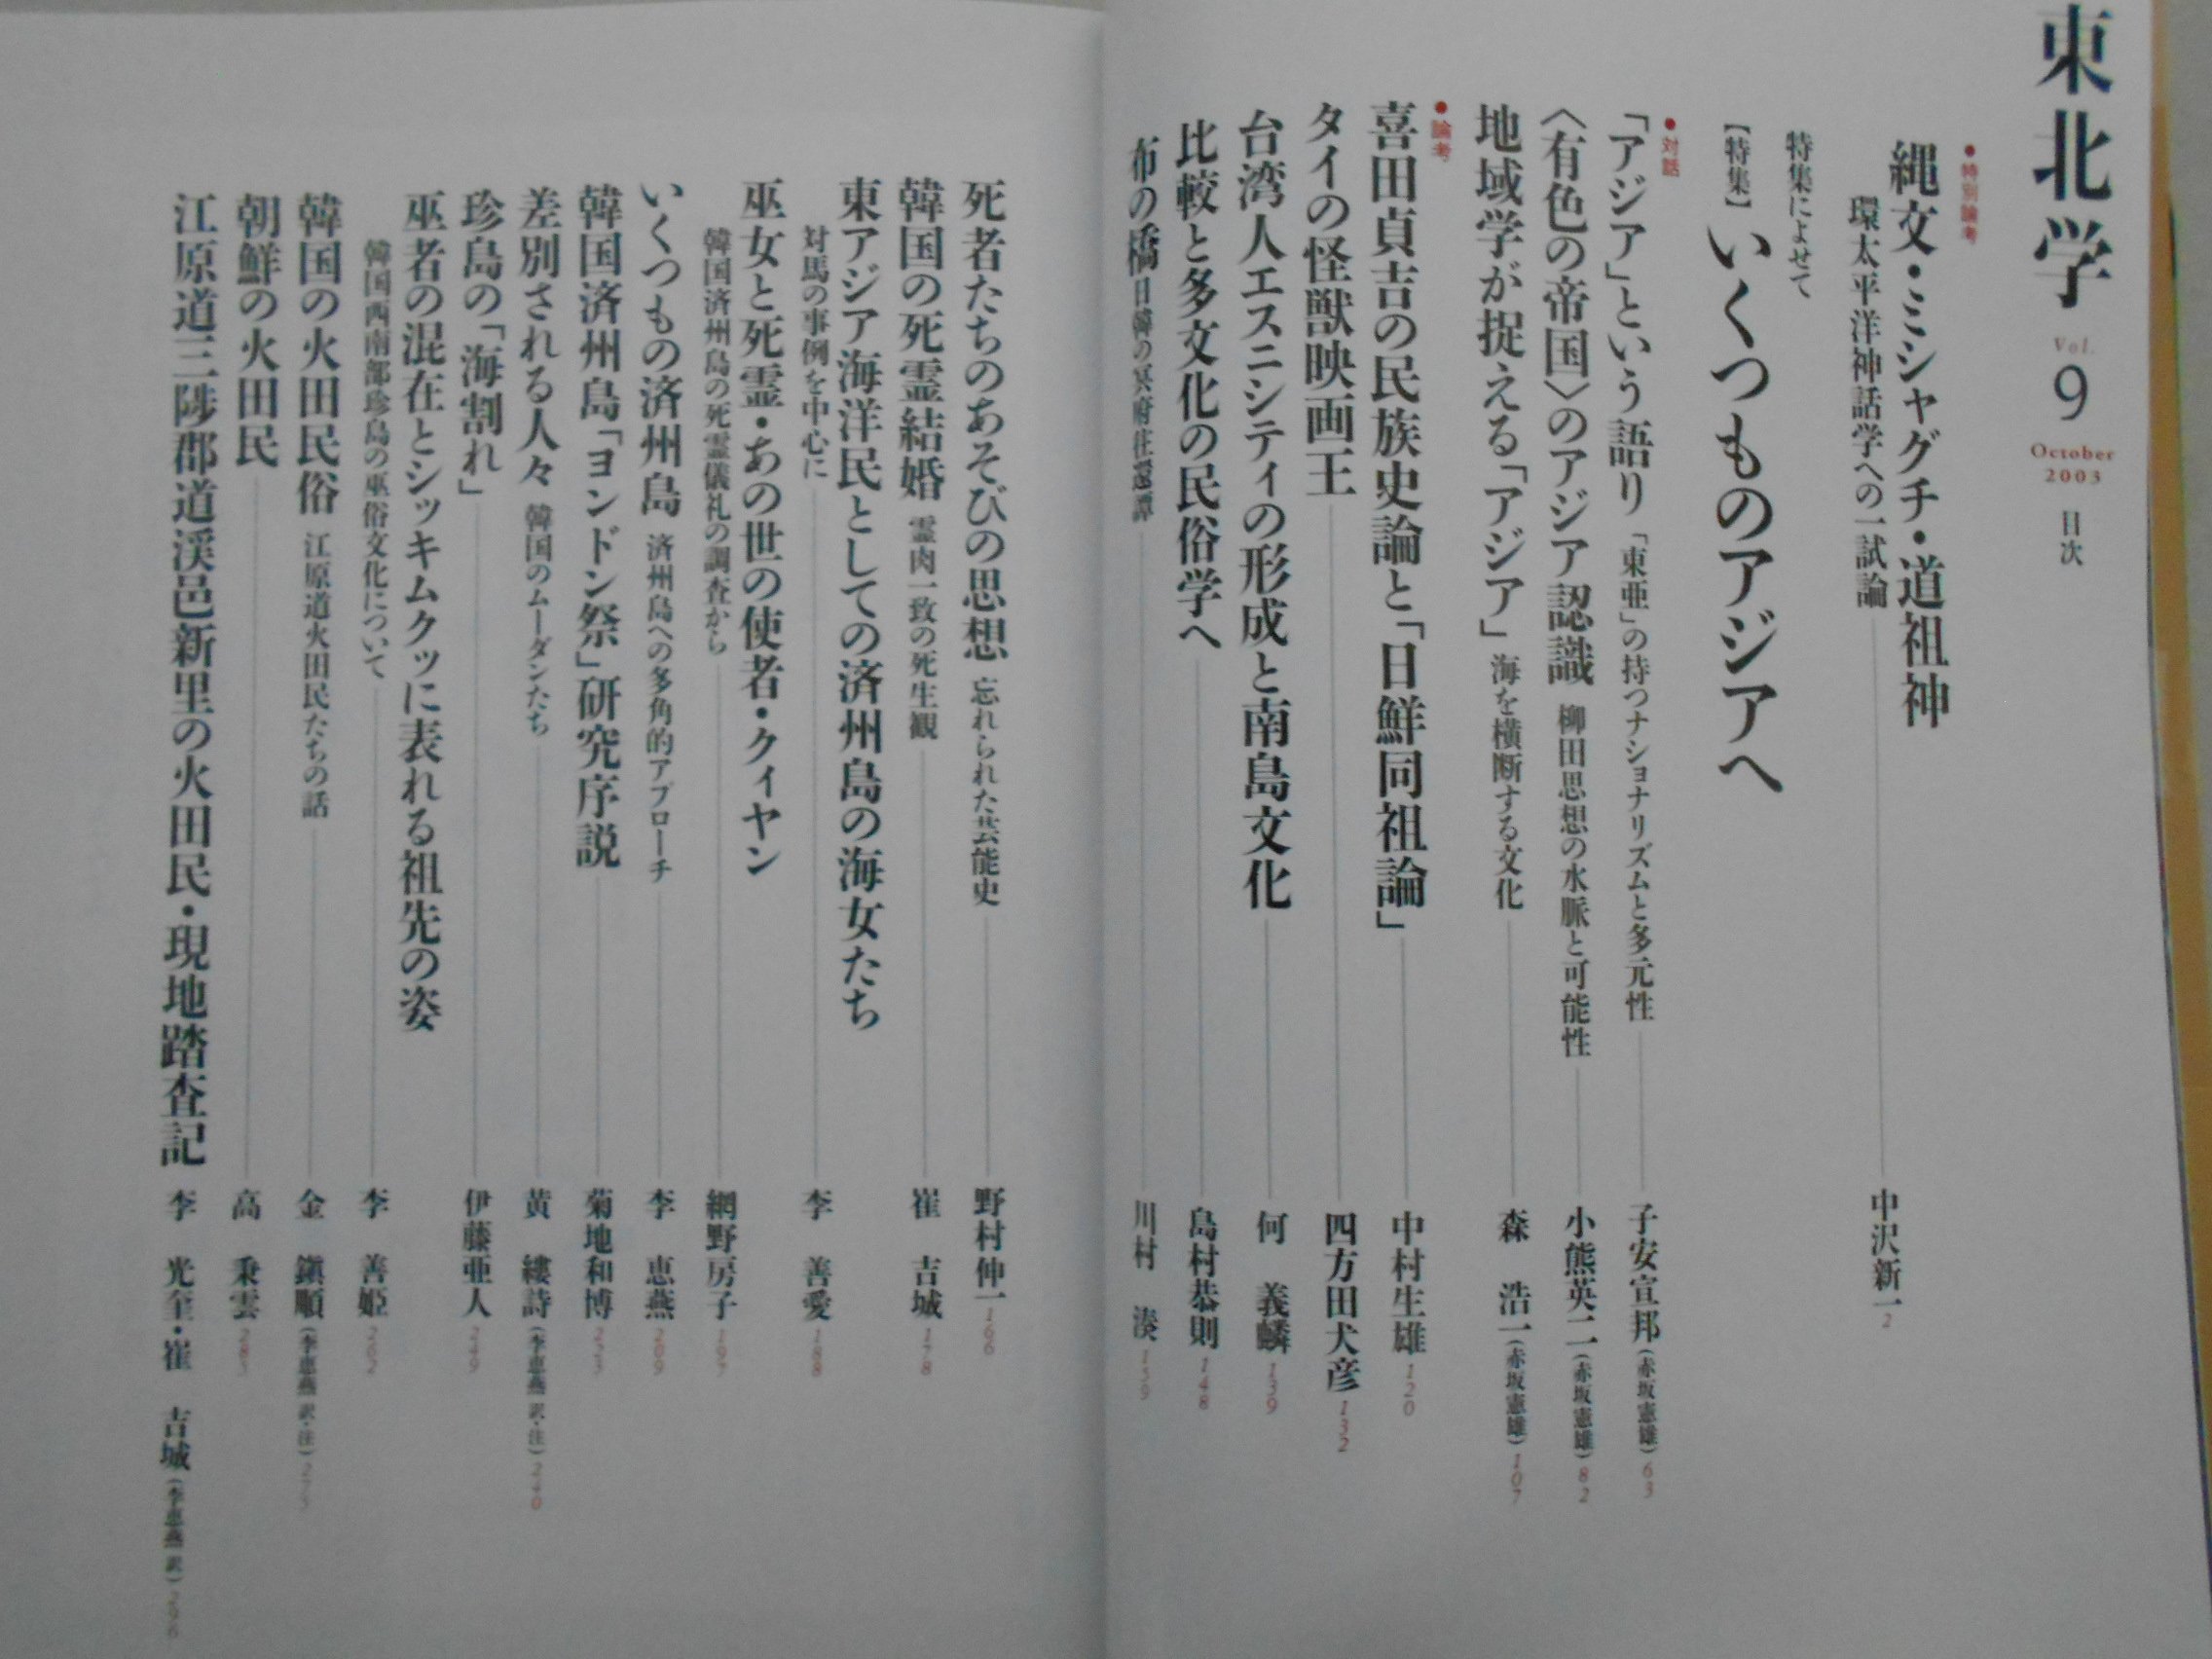 東北学 Vol. 9 October 2003 目次
●特別論考
縄文・ミシャグチ・道祖神
環太平洋神話学への一試論 中沢新一 2
特集によせて
【特集】いくつものアジアへ
●対話
「アジア」という語り 「東亜」の持つナショナリズムと多元性 子安宣邦(赤坂憲雄) 63
〈有色の帝国〉のアジア認識 柳田思想の水脈と可能性 小熊英二(赤坂憲雄) 82
地域学が捉える「アジア」 海を横断する文化 森 浩一(赤坂憲雄) 107
●論考
喜田貞吉の民族史論と「日鮮同祖論」 中村生雄 120
タイの怪獣映画王 四方田犬彦 132
台湾人エスニシティの形成と南島文化 何 義麟 139
比較と多文化の民俗学へ 島村恭則 148
布の橋 日韓の冥府往還譚 川村 湊 159
死者たちのあそびの思想 忘れられた芸能史 野村伸一 166
韓国の死霊結婚 霊肉一致の死生観 崔 吉城 178
東アジア海洋民としての済州島の海女たち
対馬の事例を中心に 李 善愛 188
巫女と死霊・あの世の使者・クィヤン
韓国済州島の死霊儀礼の調査から 網野房子 197
いくつもの済州島 済州島への多角的アプローチ 李 恵燕 209
韓国済州島「ヨンドン祭」研究序説 菊地和博 223
差別される人々 韓国のムーダンたち 黄 縷詩(李恵燕 訳・注) 240
珍島の「海割れ」 伊藤亜人 249
巫者の混在とシッキムクッに表れる祖先の姿
韓国西南部珍島の巫俗文化について 李 善姫 262
韓国の火田民俗 江原道火田民たちの話 金 鎭順(李恵燕 訳・注) 275
朝鮮の火田民 高 秉雲 285
江原道三陟郡道渓邑新里の火田民・現地踏査記 李 光奎・崔 吉城(李恵燕 訳) 296